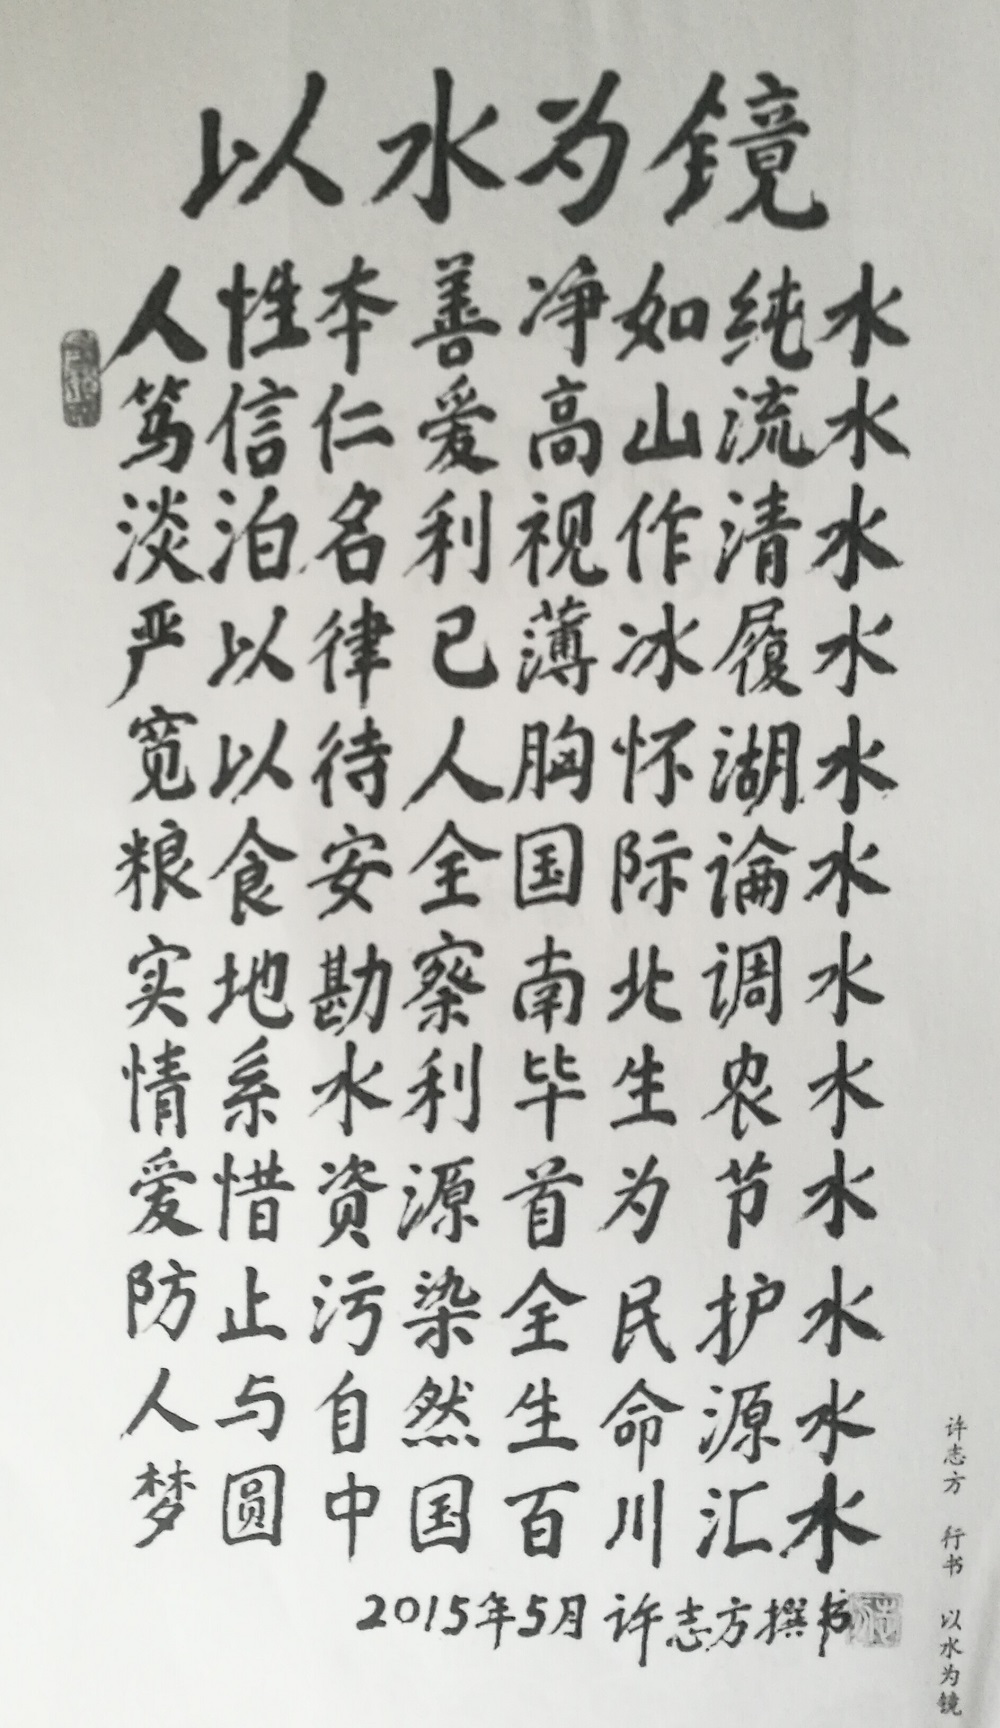 以水为镜
人性本善净如纯水
笃信仁爱高山流水
淡泊名利视作清水
严以律己薄冰履水
宽以待人胸怀湖水
粮食安全国际论水
实地勘察南北调水
情系水利毕生农水
爱惜资源首为节水
防止污染全民护水
人与自然生命源水
梦圆中国百川汇水
2015年5月 许志方撰书
许志方 行书 以水为镜